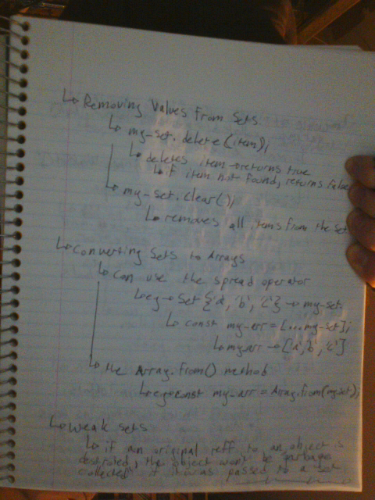 ↳ Removing Values From Sets
↳ my-set.delete(item);
↳ deletes item → returns true
↳ if item not found, returns false
↳ my-set.clear();
↳ removes all items from the set
↳ Converting Sets to Arrays
↳ Can use the spread operator
↳ eg → Set {'a', 'b', 'c'} → my-set
↳ const my-arr = [...my-set];
↳ my-arr → ['a', 'b', 'c']
↳ the Array.from() method
↳ eg → const my-arr = Array.from(my-set);
↳ Weak Sets
↳ if an original reff to an object is
destroyed, the object won't be garbage
collected if it was passed to a set